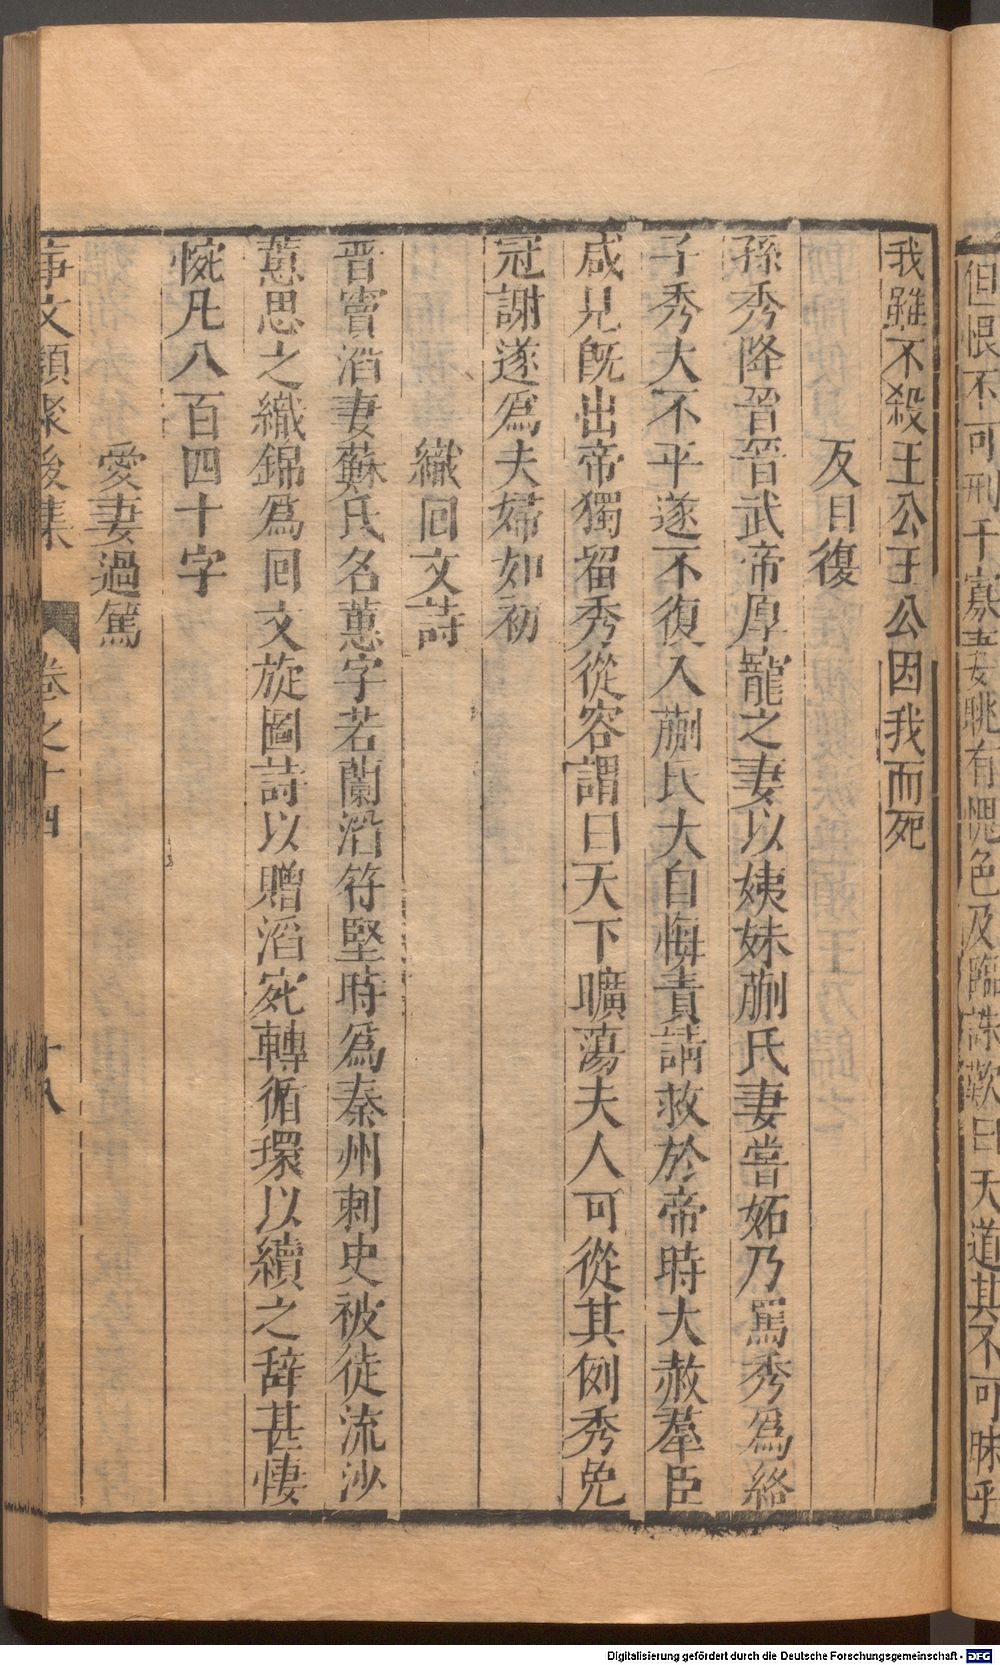 但恨不可刑于寡妻妾眺有愧色及臨誅歎曰天道其不可昧乎
我雖不殺王公王公因我而死
反日復
孫秀降晉晉武帝厚寵之妻以姨妹蒯氏妻嘗妬乃罵秀為絡
子秀大不平遂不復入蒯氏大自悔責請救於帝時大赦羣臣
咸見旣出帝獨留秀從容謂曰天下曠蕩夫人可從其例秀免
冠謝遂爲夫婦如初
織回文詩
晉竇滔妻蘇氏名蕙字若蘭沿符堅時爲秦州刺史被徒流沙
蕙思之織錦爲回文旋圖詩以贈滔宛轉循環以續之辞甚悽
惋凡八百四十字
愛妻過篤
事文類聚後集 卷之十四 十八
Digitalisierung gefördert durch die Deutsche Forschungsgemeinschaft - DFG